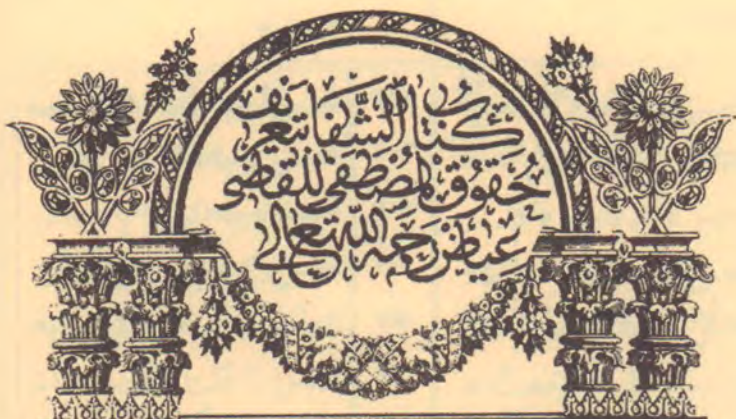 كتاب الشفا بتعريف
حُقوق المُصْطفى للقاضي
عياض رَحمه الله تعالى